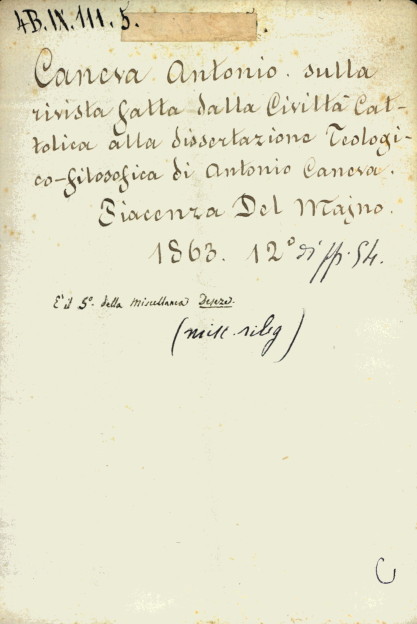 4B.IX.111.5.
Caneva Antonio. sulla
rivista fatta dalla Civiltà Cat-
tolica alla dissertazione Teologi-
co-filosofica di Antonio Caneva.
Piacenza Del Majno.
1863. 12° di pp. 54.
È il 5° della Miscellanea
(misc. rileg)
C